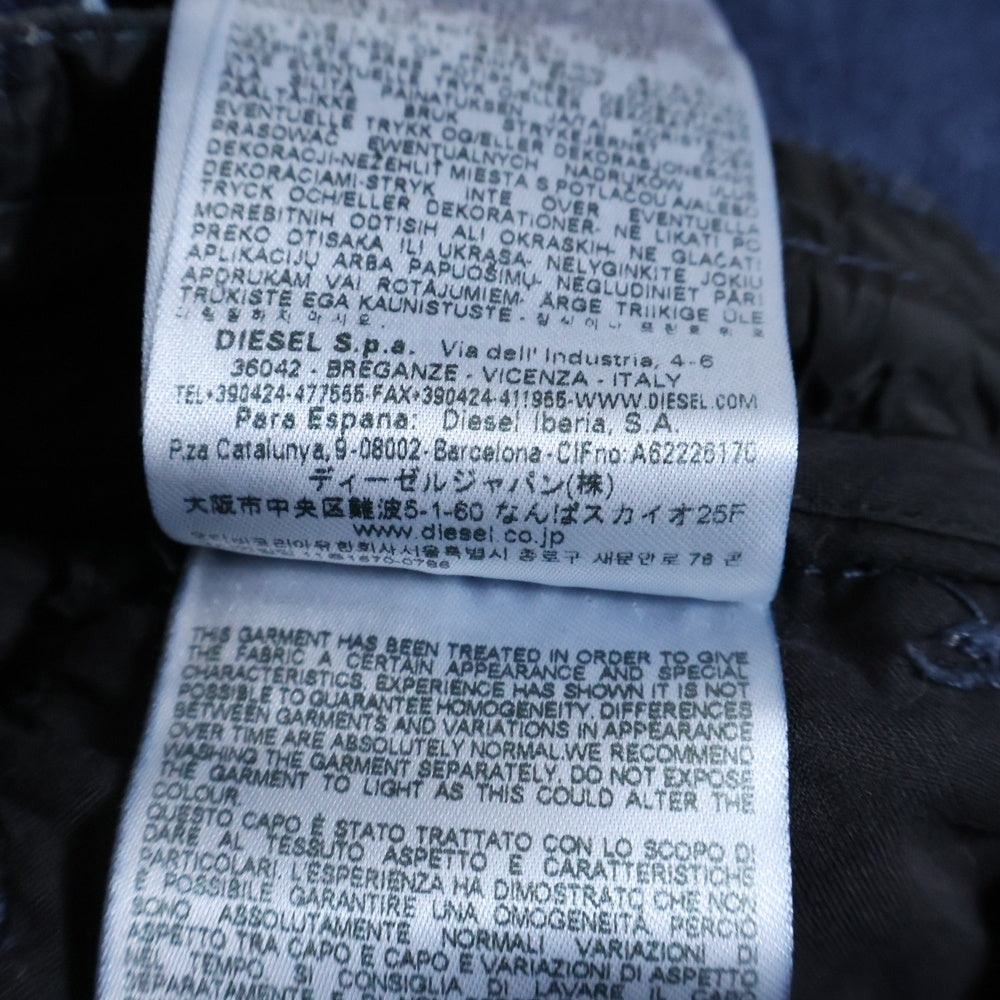 EVENTUELLE TRYKK OG/ELLER DEKORASJONER-NIE
PRASOWAĆ EWENTUALNYCH NADRUKÓW I/LUB
DEKORACJI-NEŽEHLIT MIESTA S POTLAČOU A/ALEBO
DEKORÁCIAMI-STRYK INTE ÖVER EVENTUELLA
TRYCK OCH/ELLER DEKORATIONER- NE LIKATI PO
MOREBITNIH ODTISIH ALI OKRASKIH- NE GLAČATI
PREKO OTISAKA ILI UKRASA- NELYGINKITE JOKIŲ
APLIKACIJŲ ARBA PAPUOŠIMŲ- NEGLUDINIET PĀRI
APDRUKĀM VAI ROTĀJUMIEM- ÄRGE TRIIKIGE ÜLE
TRÜKISTE EGA KAUNISTUSTE-
DIESEL S.p.a. Via dell' Industria, 4-6
36042 - BREGANZE - VICENZA - ITALY
TEL+390424-477555-FAX+390424-411955-WWW.DIESEL.COM
Para Espana: Diesel Iberia, S.A.
P.za Catalunya, 9-08002-Barcelona-CIFno:A62226170
ディーゼルジャパン(株)
大阪市中央区難波5-1-60 なんばスカイオ25F
www.diesel.co.jp
유한회사서울특별시 종로구 새문안로 76 콘
THIS GARMENT HAS BEEN TREATED IN ORDER TO GIVE
THE FABRIC A CERTAIN APPEARANCE AND SPECIAL
CHARACTERISTICS. EXPERIENCE HAS SHOWN IT IS NOT
POSSIBLE TO GUARANTEE HOMOGENEITY. DIFFERENCES
BETWEEN GARMENTS AND VARIATIONS IN APPEARANCE
OVER TIME ARE ABSOLUTELY NORMAL.WE RECOMMEND
WASHING THE GARMENT SEPARATELY. DO NOT EXPOSE
THE GARMENT TO LIGHT AS THIS COULD ALTER THE
COLOUR.
QUESTO CAPO È STATO TRATTATO CON LO SCOPO DI
DARE AL TESSUTO ASPETTO E CARATTERISTICHE
PARTICOLARI. L'ESPERIENZA HA DIMOSTRATO CHE NON
È POSSIBILE GARANTIRE UNA OMOGENEITÀ PERCIÒ
SONO ASSOLUTAMENTE NORMALI VARIAZIONI DI
ASPETTO TRA CAPO E CAPO E VARIAZIONI DI ASPETTO
NEL TEMPO. SI CONSIGLIA DI LAVARE IL CAPO